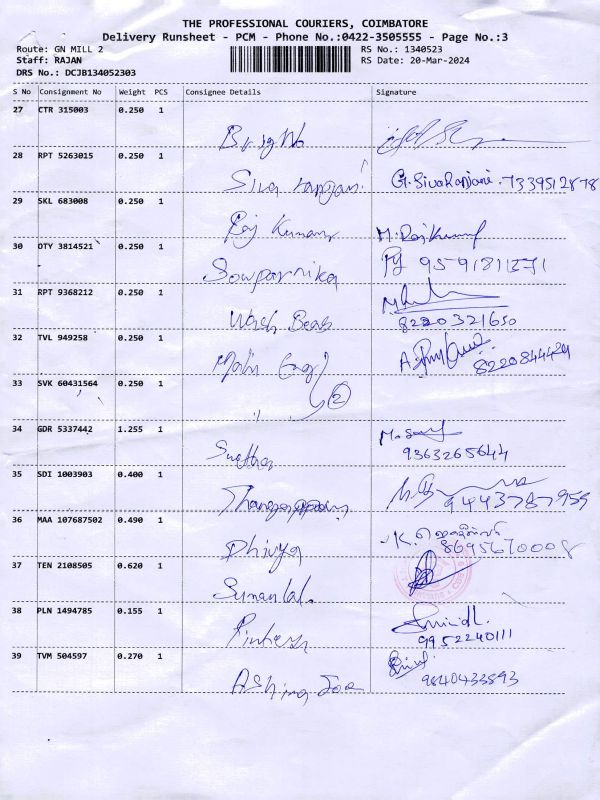 THE PROFESSIONAL COURIERS, COIMBATORE
Delivery Runsheet - PCM - Phone No.:0422-3505555 - Page No.:3
Route: GN MILL 2 RS No.: 1340523
Staff: RAJAN RS Date: 20-Mar-2024
DRS No.: DCJB134052303
S No Consignment No Weight PCS Consignee Details Signature
27 CTR 315003 0.250 1
28 RPT 5263015 0.250 1 Siva ranjani G. Sivaranjani. 7339512878
29 SKL 683008 0.250 1 Raj Kumar M. Rajkumar
30 OTY 3814521 0.250 1 Sowparnika
31 RPT 9368212 0.250 1 8220321650
32 TVL 949258 0.250 1 8220844424
33 SVK 60431564 0.250 1 2
34 GDR 5337442 1.255 1 9363265644
35 SDI 1003903 0.400 1 9443787959
36 MAA 107687502 0.490 1 Dhivya K. 8695670008
37 TEN 2108505 0.620 1 Sumanlal.
38 PLN 1494785 0.155 1 9952240111
39 TVM 504597 0.270 1 9840433593